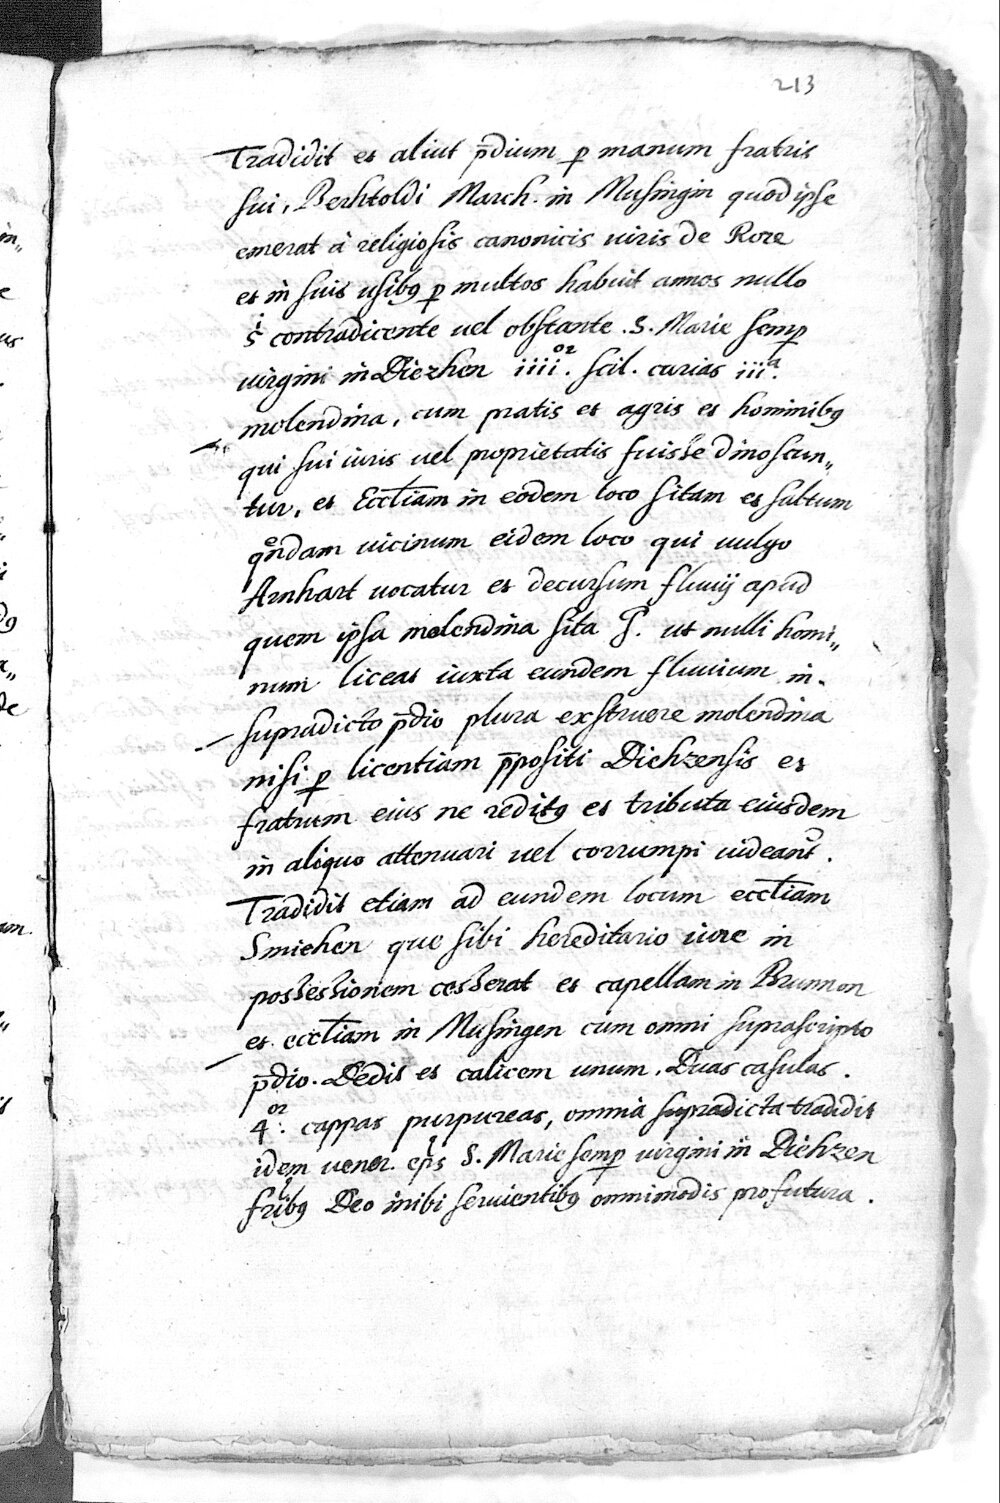 213
Tradidit et aliut p̄dium p manum fratris
sui, Berhtoldi March. in Musingin quod ipse
emerat à religiosis canonicis uiris de Rore
et in suis usibꝯ p multos habuit annos nullo
s̓ contradicente uel obstante . S. Marie semp
uirgini in Diezhen iiii.or scil. curias iii.a
molendina, cum pratis et agris et hominibꝯ
qui sui iuris uel proprietatis fuisse dinoscun„
tur, et Eccl̄iam in eodem loco sitam et saltum
qͦndam uicinum eidem loco qui uulgo
Arnhart uocatur et decursum fluuij apud
quem ipsa molendina sita ꝭ. ut nulli homi„
num liceat iuxta eundem fluuium in
supradicto p̄dio plura exstruere molendina
nisi p licentiam p̄positi Diehzensis et
fratrum eius ne reditꝯ et tributa eiusdem
in aliquo attenuari uel corrumpi uideant̉.
Tradidit etiam ad eundem locum eccl̄iam
Smiehen que sibi hereditario iure in
possessionem cesserat et capellam in Brunnon
et eccl̄iam in Musingen cum omni suprascripto
p̄dio. Dedit et calicem unum. Duas casulas.
4.or cappas purpureas, omnia supradicta tradidit
idem uener. ep̄s S. Marie semp uirgini in Diehzen
fr̄ibꝯ Deo inibi seruientibꝯ omnimodis profutura.